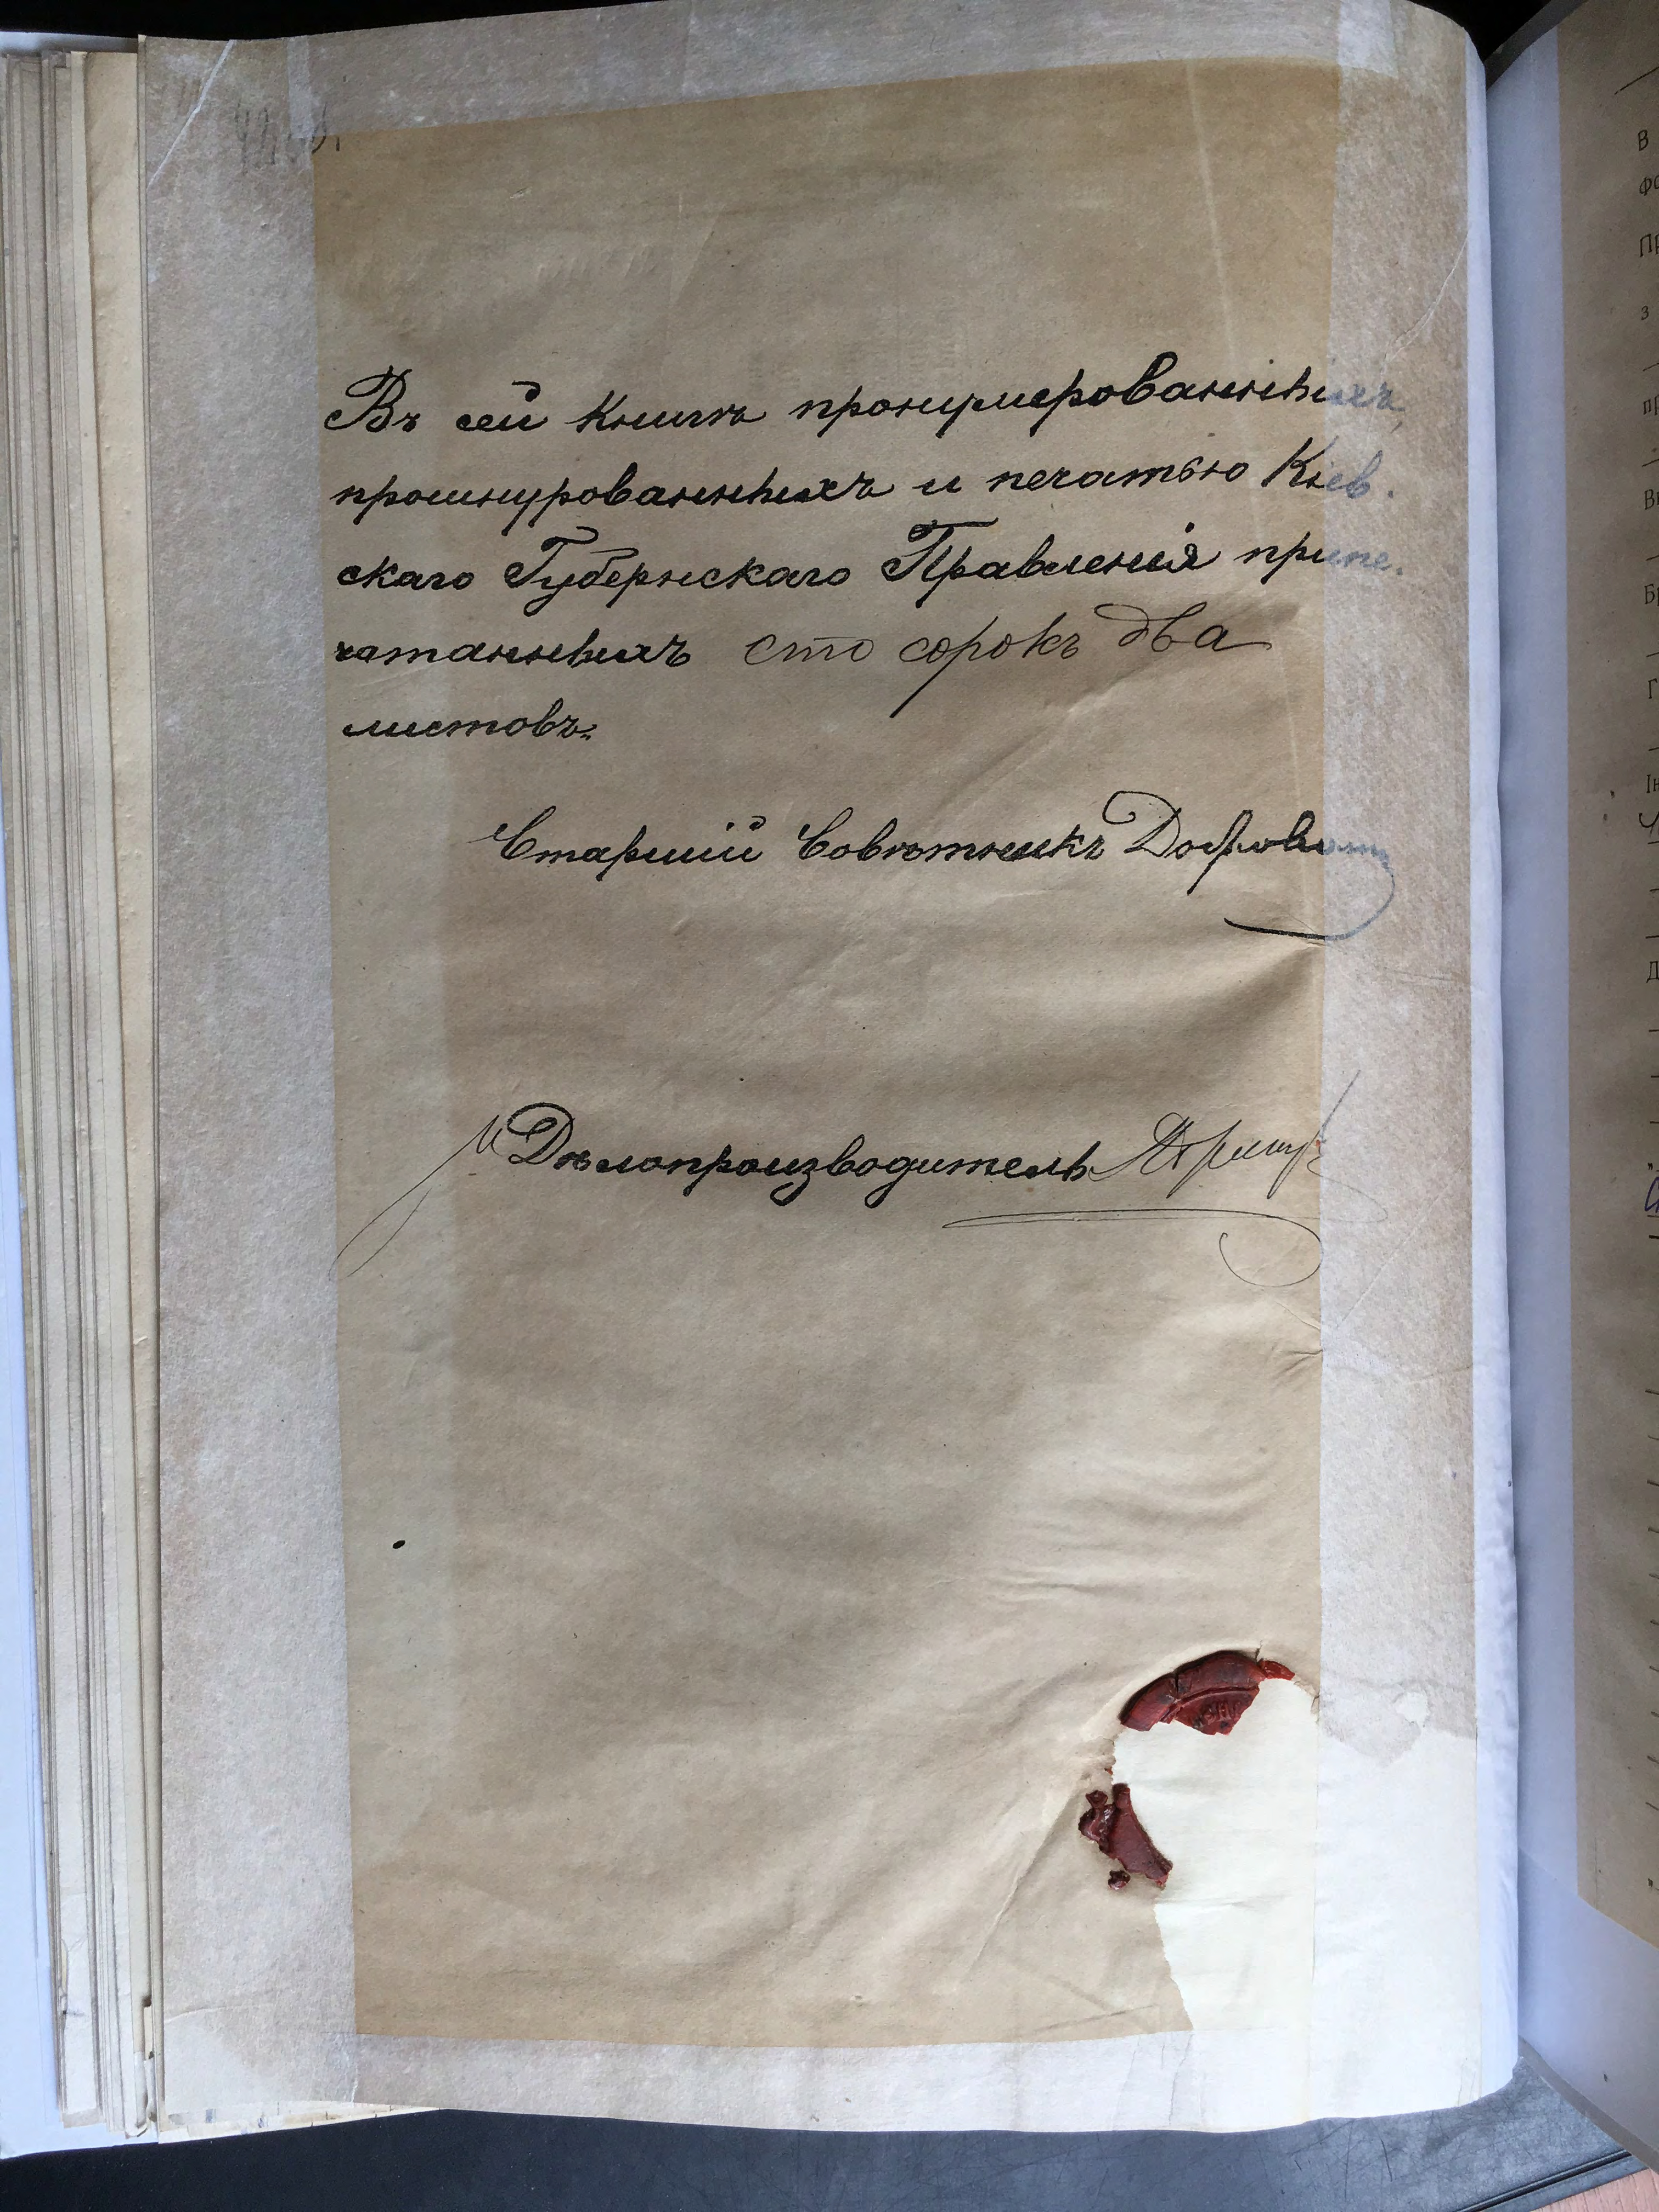 Въ сей книгѣ пронумерованныхъ,
прошнурованныхъ и печатью Кіев.
скаго Губернскаго Правленія припе.
чатанныхъ сто сорокъ два
листовъ.
Старшій Совѣтникъ
Дѣлопроизводитель